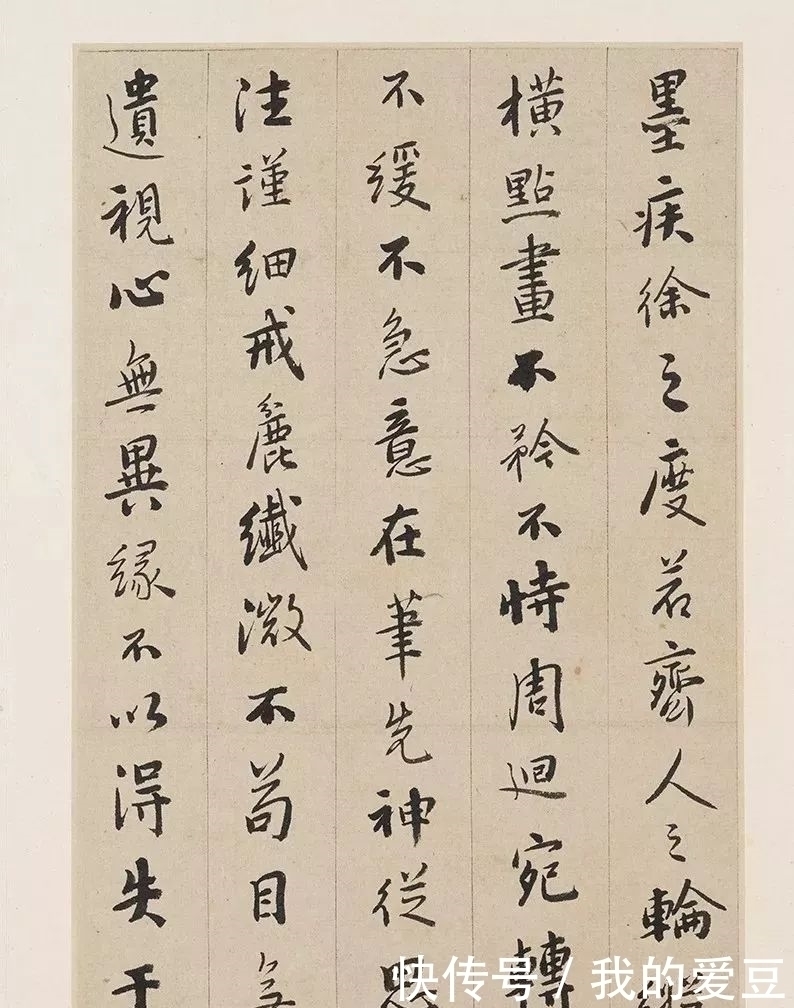 墨疾徐之度若齊人之輪
橫點畫不矜不恃周迴宛轉
不緩不急意在筆先神從思
注謹細戒麄纖微不苟目無
遺視心無異緣不以得失干
快传号 / 我的爱豆